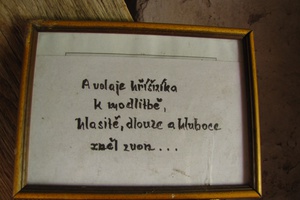 A volaje hříčníka
k modlitbě,
hlasitě, dlouze a hluboce
zněl zvon...